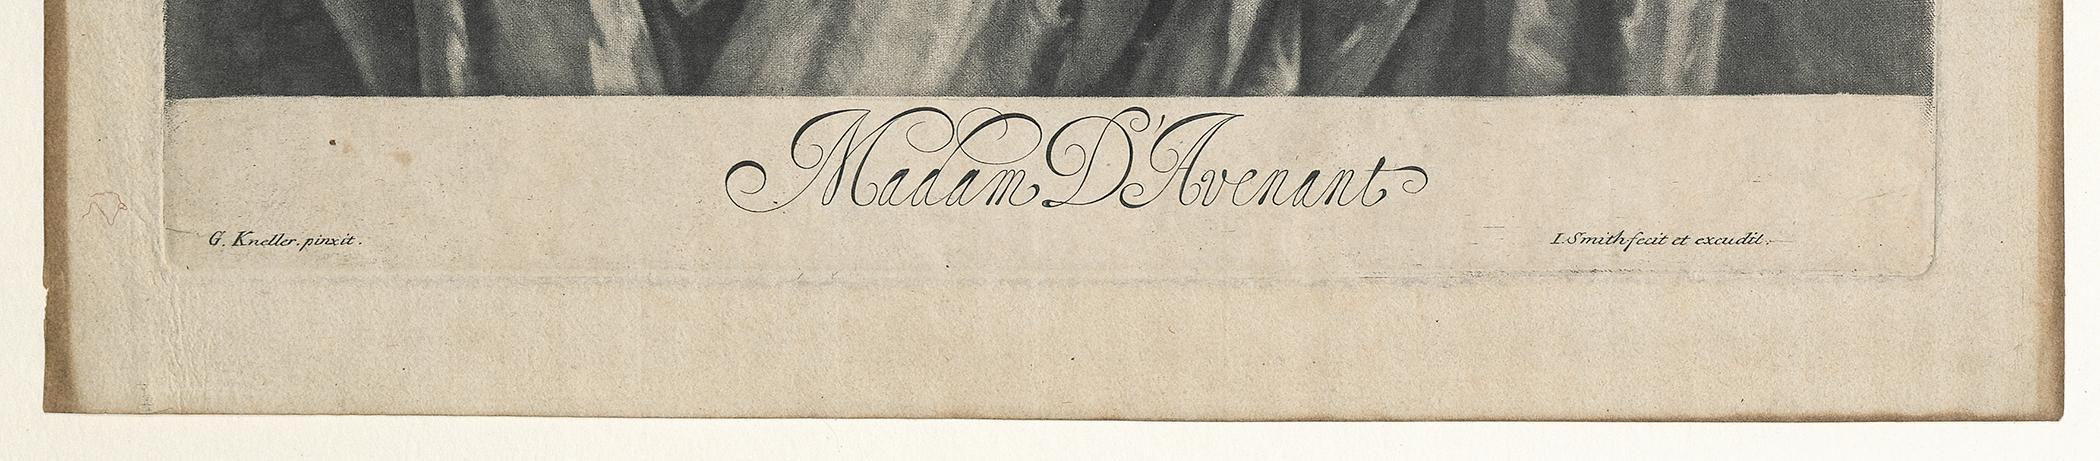 Madam D'Avenant
G. Kneller. pinxit.
I. Smith fecit et excudit.